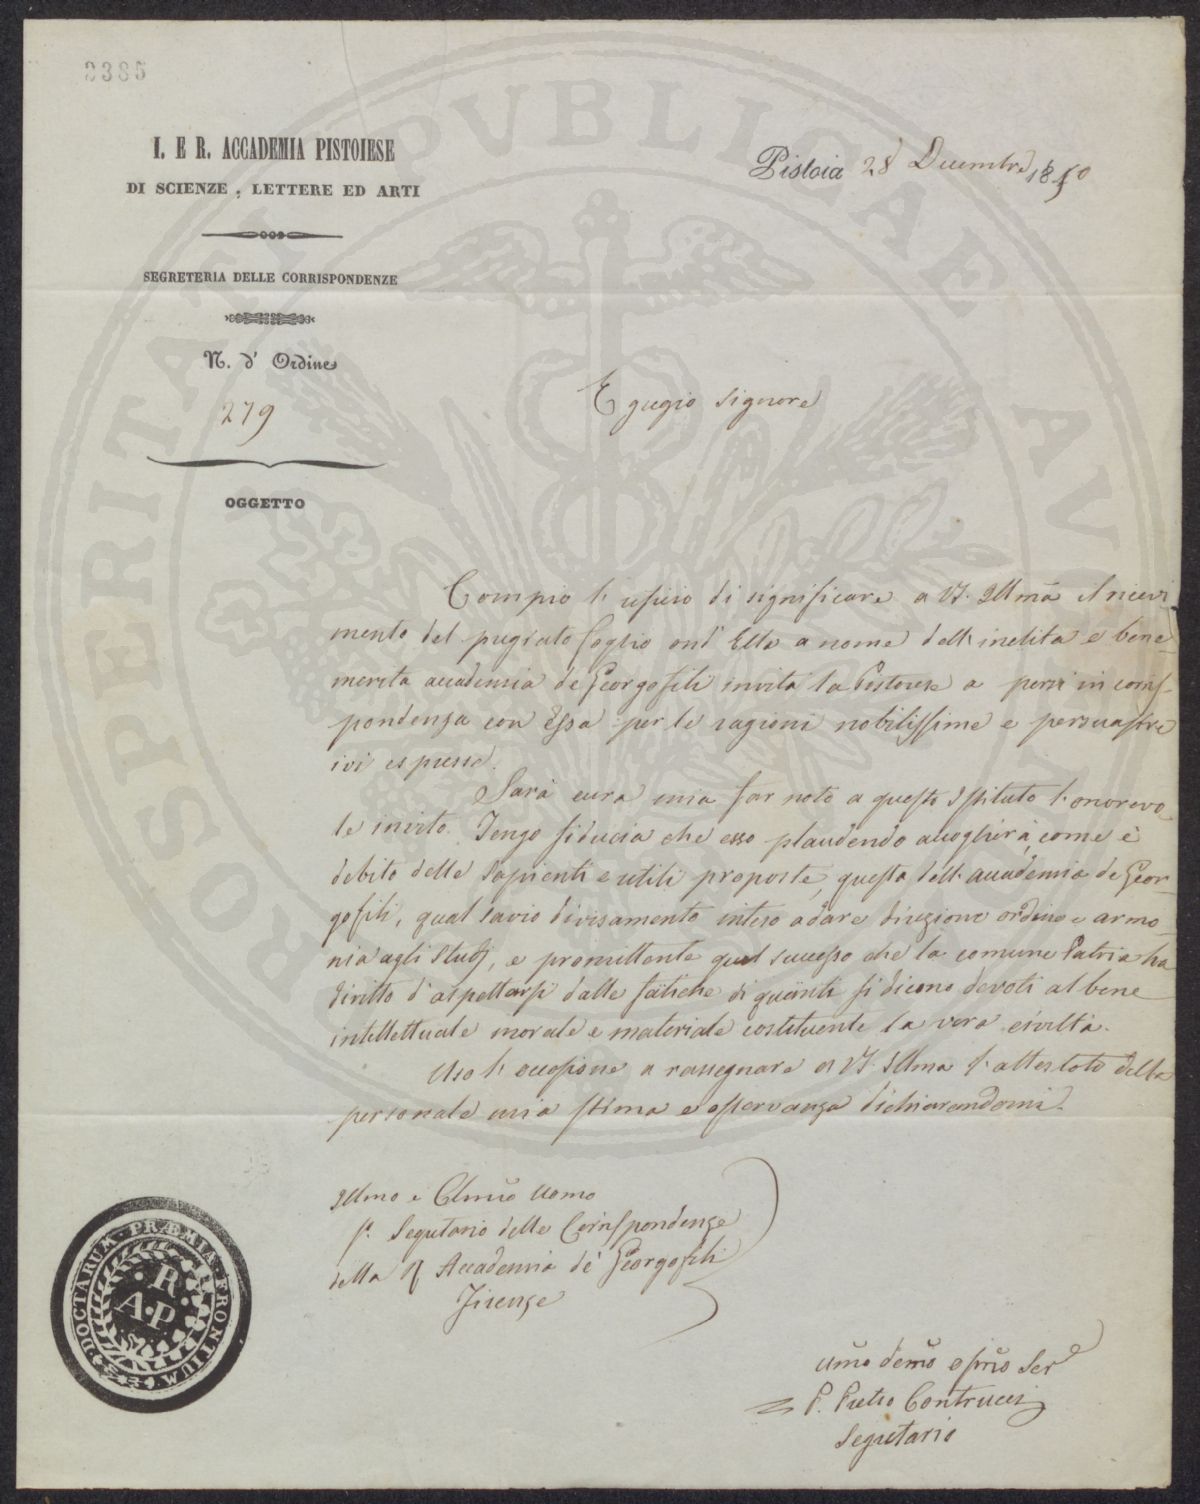 2385
I. E R. ACCADEMIA PISTOIESE
DI SCIENZE, LETTERE ED ARTI
SEGRETERIA DELLE CORRISPONDENZE
N. d' Ordine
279
OGGETTO
Pistoia 28 Dicembre 1850
Egregio Signore
Compio l'uficio di significare a V. Illma il ricevi
mento del pregiato foglio ond'Ella a nome dell'inclita e bene-
merita accademia de Georgofili invita la Pistoiese a porsi in corris-
pondenza con Essa per le ragioni nobilissime e persuasive
ivi espresse.
Sarà cura mia far noto a questo Istituto l'onorevo
le invito. Tengo fiducia che esso plaudendo accoglierà, come è
debito delle sapienti e utili proposte, questa dell'accademia de Geor-
gofili, qual savio divisamento inteso a dare direzione ordine e armo-
nia agli studj, e promittente quel successo che la comune Patria ha
diritto d'aspettarsi dalle fatiche di quanti si dicono devoti al bene
intellettuale morale e materiale costituente la vera civiltà.
Uso l'occasione a rassegnare a V. Illma l'attestato della
personale mia stima e osservanza dichiarandomi.
Illmo e Clmo Uomo
Segretario delle Corrispondenze
della R Accademia de' Georgofili
Firenze
Umo Demo Ser
P. Pietro Contrucci
Segretario
DOCTARUM PRÆMIA FRONTIUM
R
A.P
PROSPERITATI PVBLICAE AV